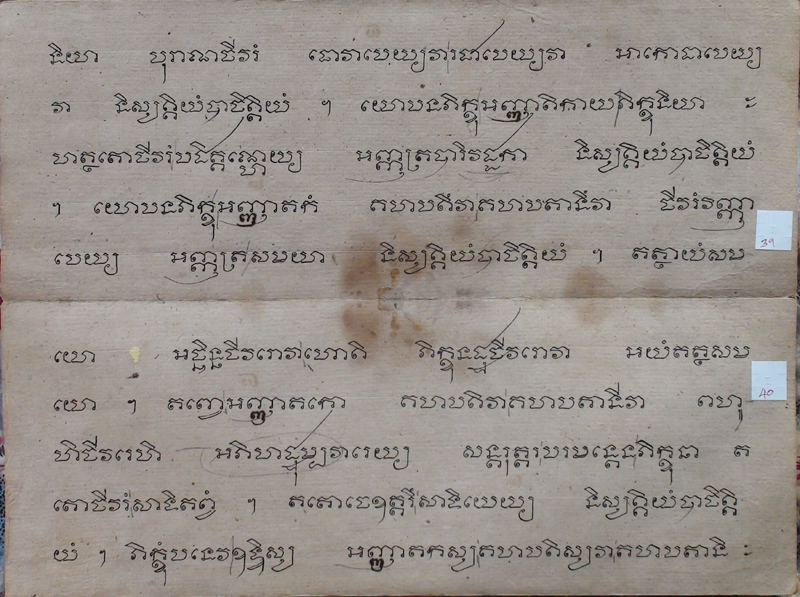 និយា បុរាណចីវរំ ធោវាបេយ្យវារជាបេយ្យវា អាកោដាបេយ្យ
វា និស្សគ្គិយំបាចិត្តិយំ ។ យោបនភិក្ខុអញ្ញាតិកាយភិក្ខុនិយា ៈ
ហត្ថតោចីវរំបដិគ្គណ្ហេយ្យ អញ្ញត្របារិវដ្ដកា និស្សគ្គិយំបាចិត្តិយំ
។ យោបនភិក្ខុអញ្ញាតកំ គហបតឹវាគហបតានឹវា ចីវរំវិញ្ញា
បេយ្យ អញ្ញត្រសមយា និស្សគ្គិយំបាចិត្តិយំ ។ តត្ថាយំសម
39
យោ អច្ឆិន្នចីវរោវាហោតិ ភិក្ខុនដ្ឋចីវរោវា អយំតត្ថសម
យោ ។ តញ្ចេអញ្ញាតកោ គហបតិវាគហបតានីវា ពហូ
40
ហិចីវរេហិ អភិហដ្ឋុម្បវារេយ្យ សន្តរុត្តរបរមន្តេនភិក្ខុនា ត
តោចីវរំសាទិតព្វំ ។ តតោចេឧត្តរឹសាទិយេយ្យ និស្សគ្គិយំបាចិត្តិ
យំ ។ ភិក្ខុំបនេវឧទ្ទិស្ស អញ្ញាតកស្សគហបតិស្សវាគហបតានិ ៈ